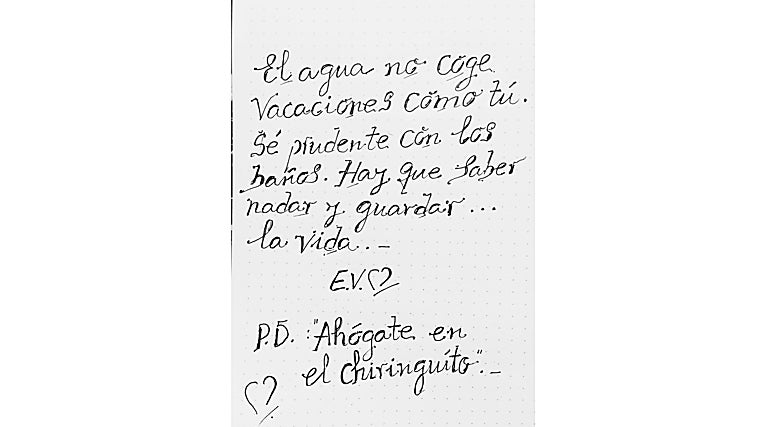 El agua no coge
vacaciones como tú.
Sé prudente con los
baños. Hay que saber
nadar y guardar...
la vida.._
E.V.♡
P.D. :"Ahógate en
el chiringuito"._